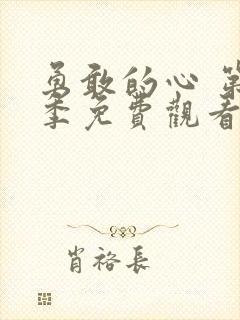 勇敢的心 第
季免費觀看
肖裕長